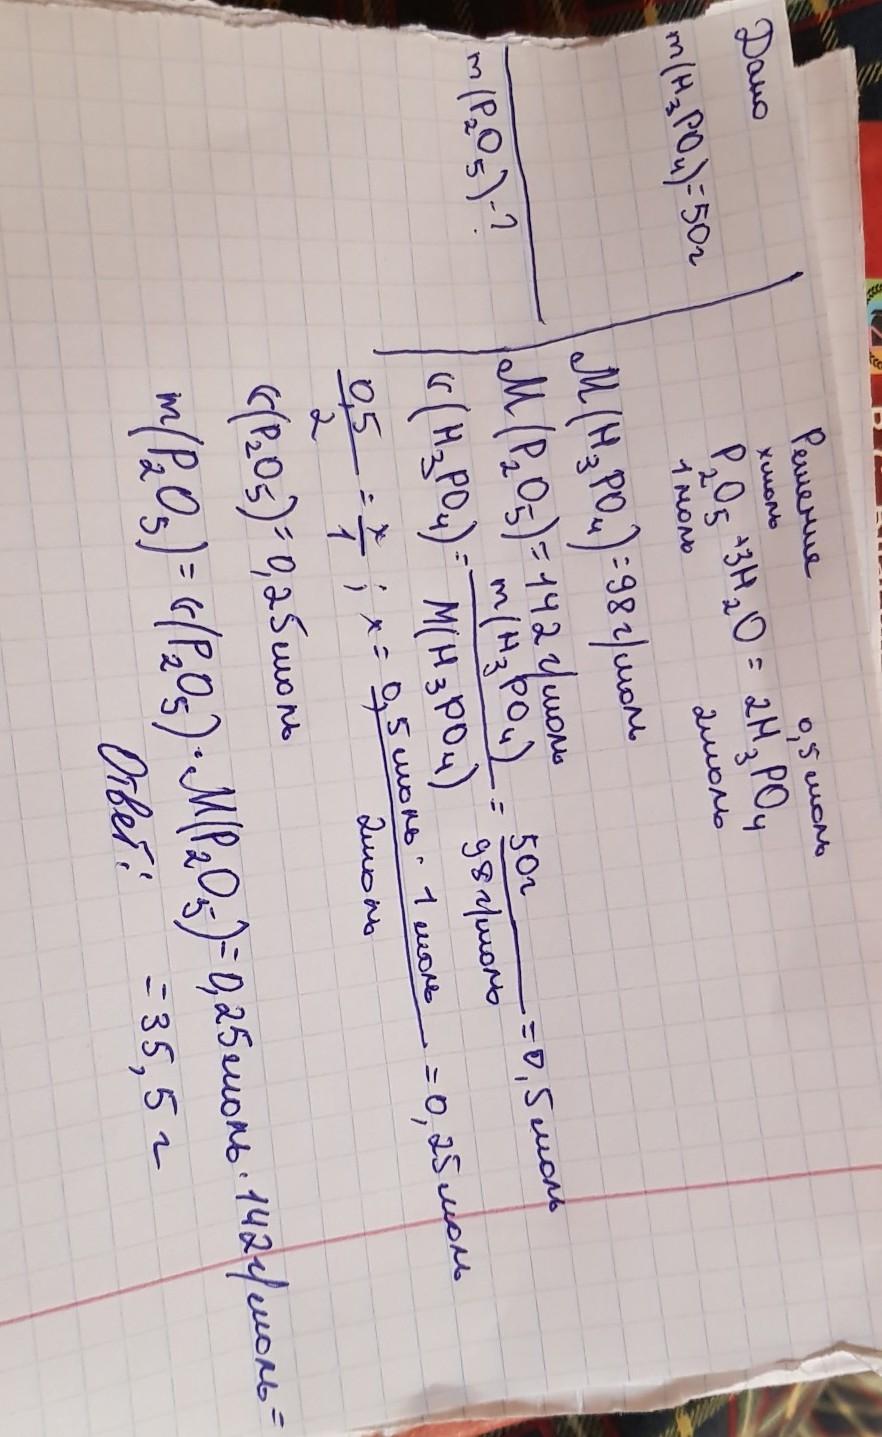 Дано
m(H₃PO₄)=50г
m(P₂O₅)-?
Решение
x моль 0,5 моль
P₂O₅ + 3H₂O = 2H₃PO₄
1 моль 2 моль
M(H₃PO₄)=98 г/моль
M(P₂O₅)=142 г/моль
ν(H₃PO₄) = m(H₃PO₄) / M(H₃PO₄) = 50г / 98 г/моль = 0,5 моль
0,5 / 2 = x / 1 ; x = 0,5 моль · 1 моль / 2 моль = 0,25 моль
ν(P₂O₅)=0,25 моль
m(P₂O₅) = ν(P₂O₅) · M(P₂O₅)=0,25 моль · 142 г/моль =
= 35,5 г
Ответ: